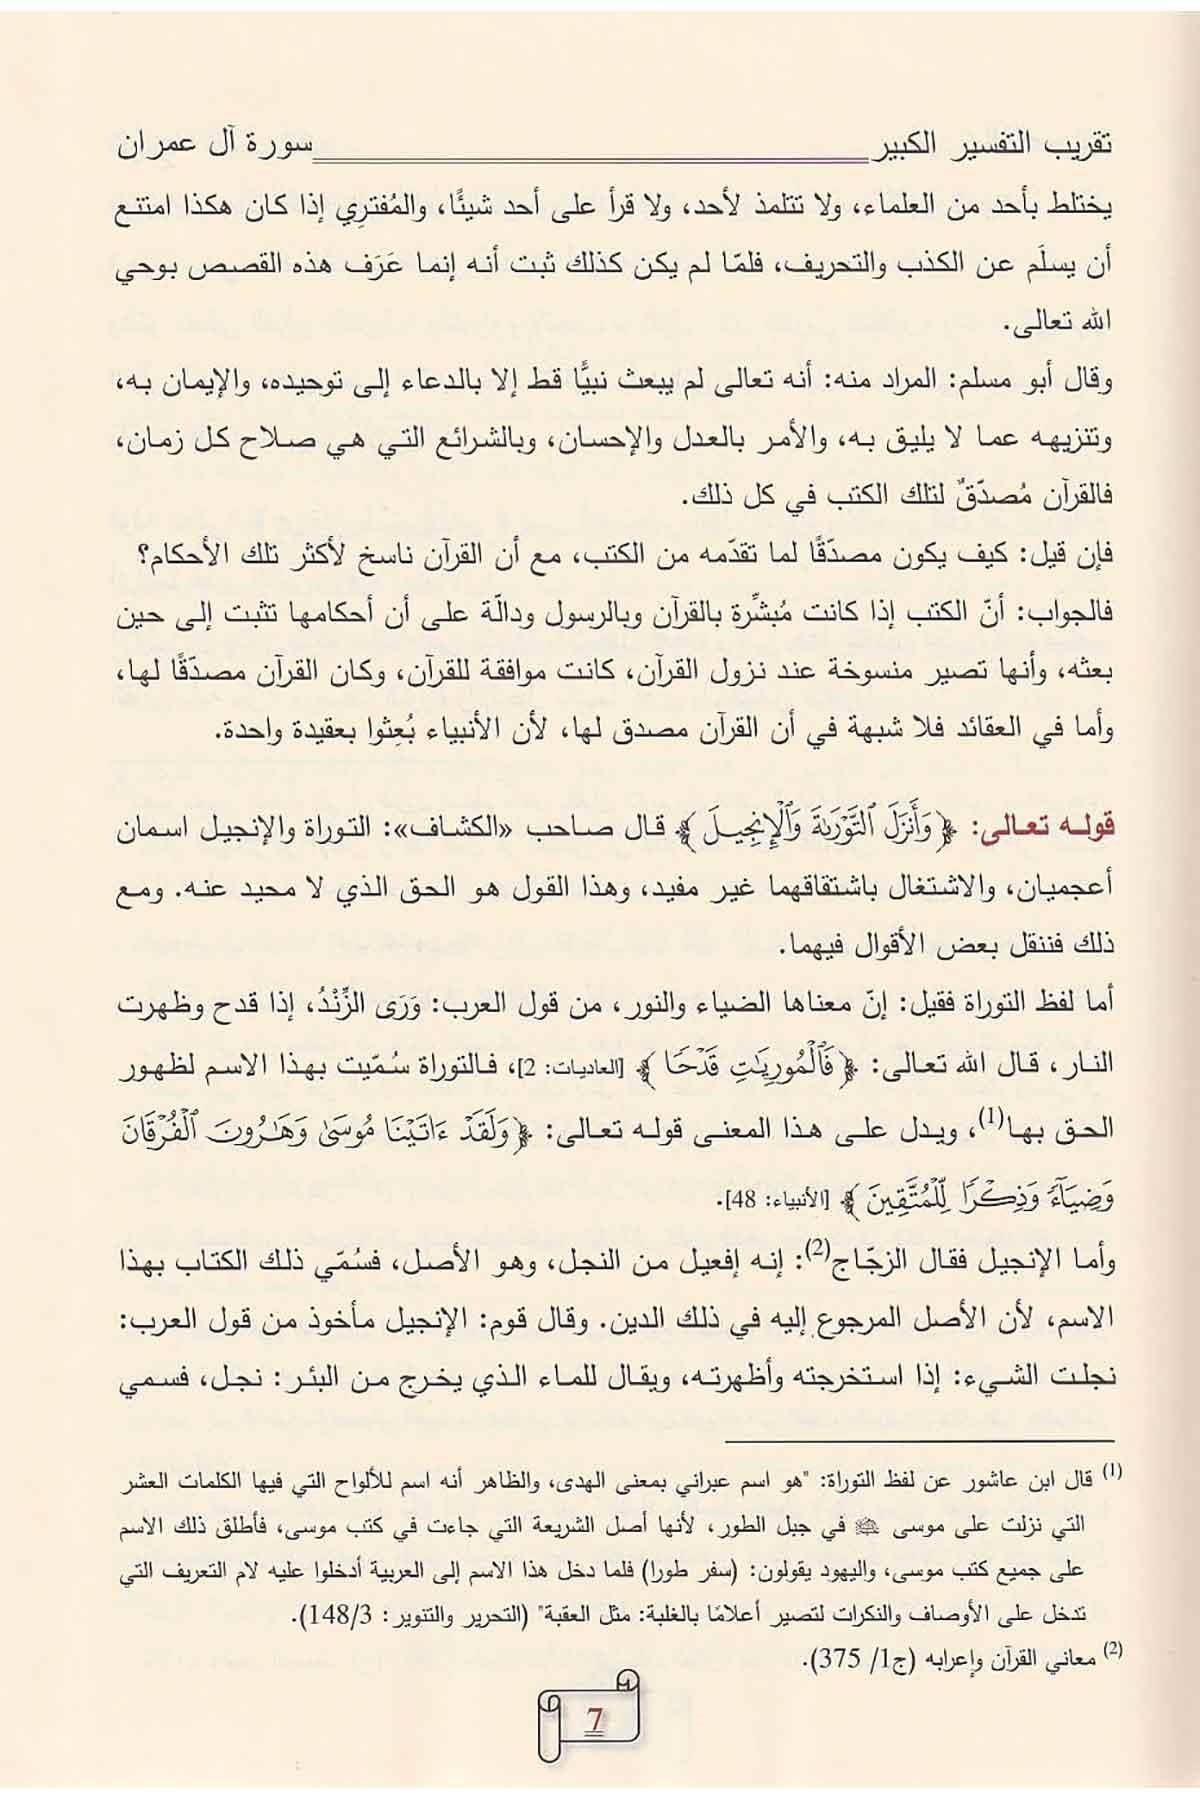 تقريب التفسير الكبير سورة آل عمران
يختلط بأحد من العلماء، ولا تتلمذ لأحد، ولا قرأ على أحد شيئًا، والمُفترِي إذا كان هكذا امتنع
أن يسلَم عن الكذب والتحريف، فلمّا لم يكن كذلك ثبت أنه إنما عَرَف هذه القصص بوحي
الله تعالى.
وقال أبو مسلم: المراد منه: أنه تعالى لم يبعث نبيًّا قط إلا بالدعاء إلى توحيده، والإيمان به،
وتنزيهه عما لا يليق به، والأمر بالعدل والإحسان، وبالشرائع التي هي صلاح كل زمان،
فالقرآن مُصدّقٌ لتلك الكتب في كل ذلك.
فإن قيل: كيف يكون مصدّقًا لما تقدّمه من الكتب، مع أن القرآن ناسخ لأكثر تلك الأحكام؟
فالجواب: أنّ الكتب إذا كانت مُبشِّرة بالقرآن وبالرسول ودالّة على أن أحكامها تثبت إلى حين
بعثه، وأنها تصير منسوخة عند نزول القرآن، كانت موافقة للقرآن، وكان القرآن مصدّقًا لها،
وأما في العقائد فلا شبهة في أن القرآن مصدق لها، لأن الأنبياء بُعِثوا بعقيدة واحدة.
قوله تعالى: ﴿وَأَنزَلَ ٱلتَّوۡرَىٰةَ وَٱلۡإِنجِيلَ﴾ قال صاحب «الكشاف»: التوراة والإنجيل اسمان
أعجميان، والاشتغال باشتقاقهما غير مفيد، وهذا القول هو الحق الذي لا محيد عنه. ومع
ذلك فننقل بعض الأقوال فيهما.
أما لفظ التوراة فقيل: إنّ معناها الضياء والنور، من قول العرب: وَرَى الزِّنْدُ، إذا قدح وظهرت
النار، قال الله تعالى: ﴿فَٱلۡمُورِيَٰتِ قَدۡحٗا﴾ [العاديات: 2]، فالتوراة سُمّيت بهذا الاسم لظهور
الحق بها(1)، ويدل على هذا المعنى قوله تعالى: ﴿وَلَقَدۡ ءَاتَيۡنَا مُوسَىٰ وَهَٰرُونَ ٱلۡفُرۡقَانَ
وَضِيَآءٗ وَذِكۡرٗا لِّلۡمُتَّقِينَ﴾ [الأنبياء: 48].
وأما الإنجيل فقال الزجّاج(2): إنه إفعيل من النجل، وهو الأصل، فسُمّي ذلك الكتاب بهذا
الاسم، لأن الأصل المرجوع إليه في ذلك الدين. وقال قوم: الإنجيل مأخوذ من قول العرب:
نجلت الشيء: إذا استخرجته وأظهرته، ويقال للماء الذي يخرج من البئر: نجل، فسمي
(1) قال ابن عاشور عن لفظ التوراة: "هو اسم عبراني بمعنى الهدى، والظاهر أنه اسم للألواح التي فيها الكلمات العشر
التي نزلت على موسى ﷺ في جبل الطور، لأنها أصل الشريعة التي جاءت في كتب موسى، فأطلق ذلك الاسم
على جميع كتب موسى، واليهود يقولون: (سفر طورا) فلما دخل هذا الاسم إلى العربية أدخلوا عليه لام التعريف التي
تدخل على الأوصاف والنكرات لتصير أعلامًا بالغلبة: مثل العقبة" (التحرير والتنوير: 148/3).
(2) معاني القرآن وإعرابه (ج1/ 375).
7